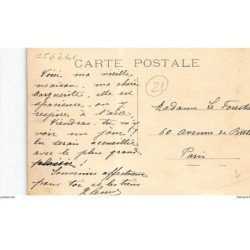 CARTE POSTALE
21
Voici ma vieille
maison, ma chère
Marguerite, elle est
spacieuse, on y
respire à l'aise.
Viendras-tu m'y
voir un jour?
tu seras accueillie
avec le plus grand
plaisir!
Souvenirs affectueux
pour toi et les tiens
Madame Le Forestier
60 avenue de
Paris